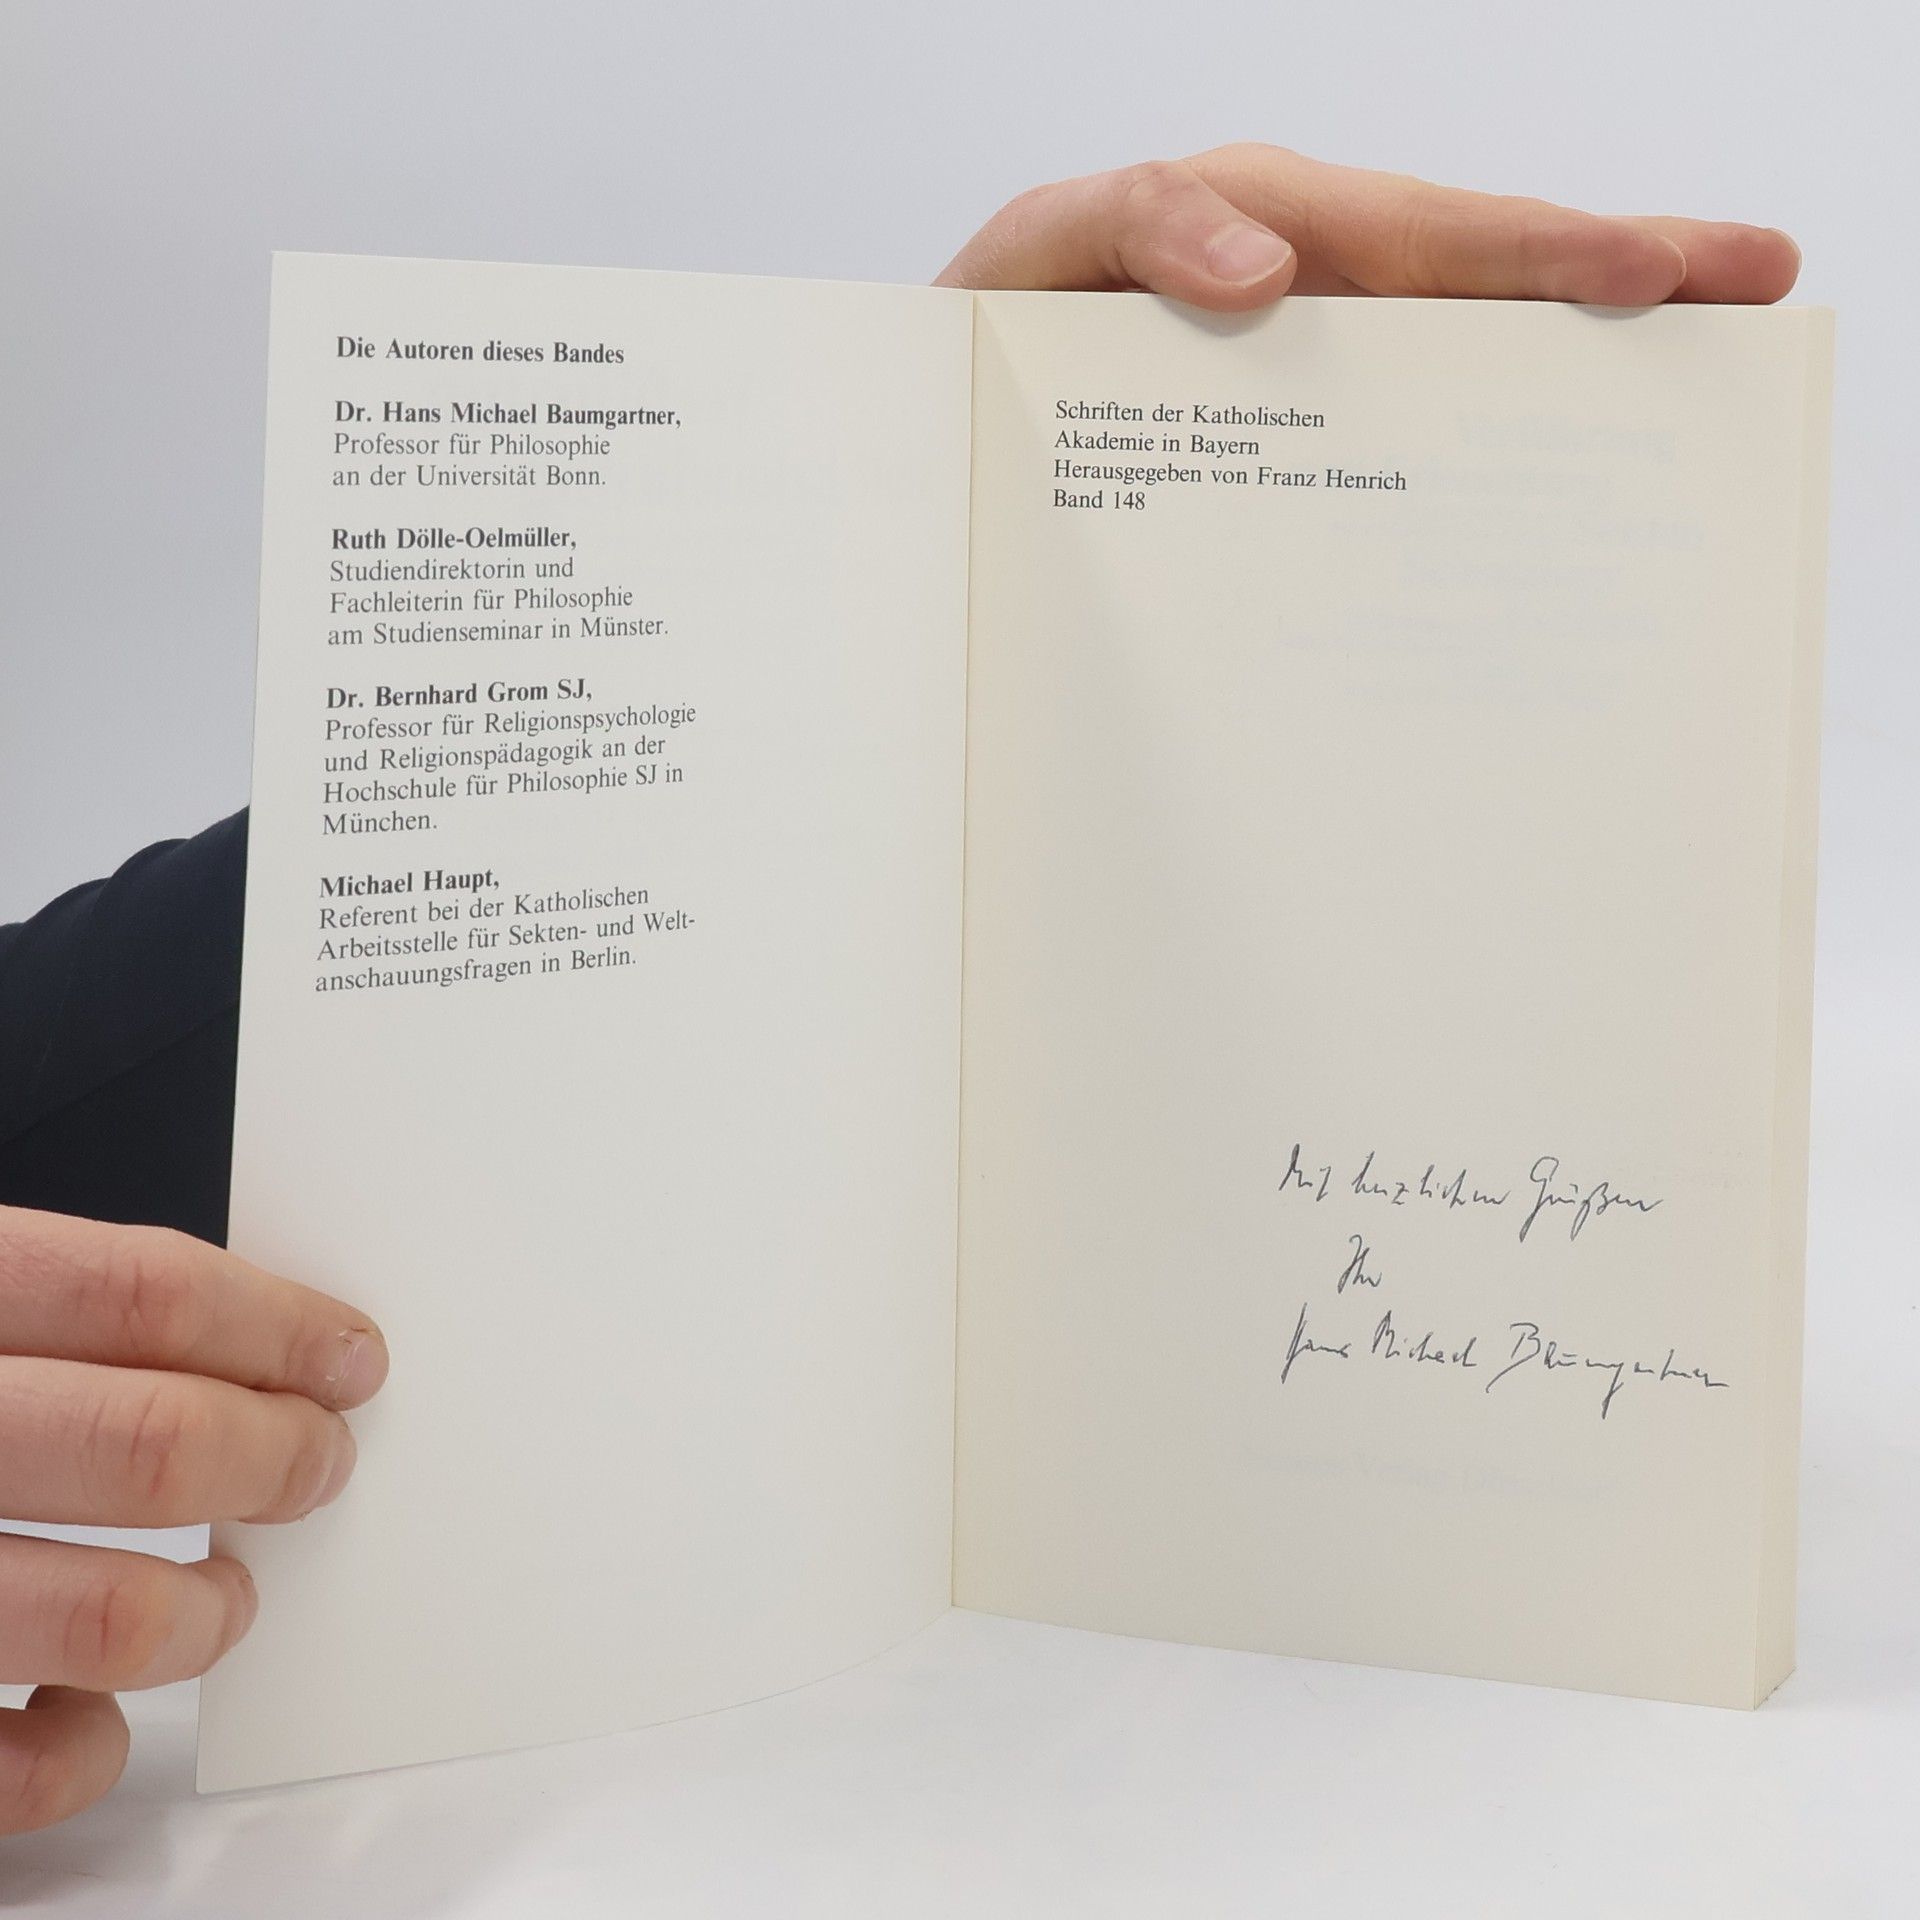 Die Autoren dieses Bandes
Dr. Hans Michael Baumgartner,
Professor für Philosophie
an der Universität Bonn.
Ruth Dölle-Oelmüller,
Studiendirektorin und
Fachleiterin für Philosophie
am Studienseminar in Münster.
Dr. Bernhard Grom SJ,
Professor für Religionspsychologie
und Religionspädagogik an der
Hochschule für Philosophie SJ in
München.
Michael Haupt,
Referent bei der Katholischen
Arbeitsstelle für Sekten- und Welt-
anschauungsfragen in Berlin.
Schriften der Katholischen
Akademie in Bayern
Herausgegeben von Franz Henrich
Band 148
Mit herzlichen Grüßen
Ihr
Hans Michael Baumgartner